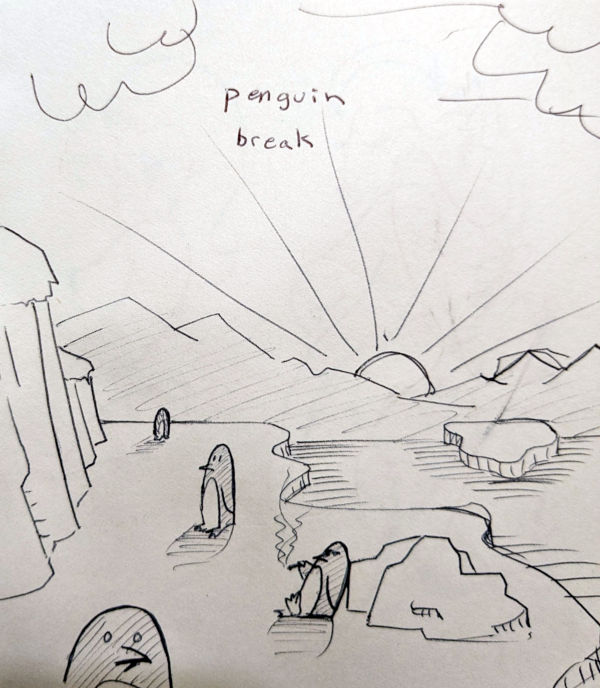 penguin
break